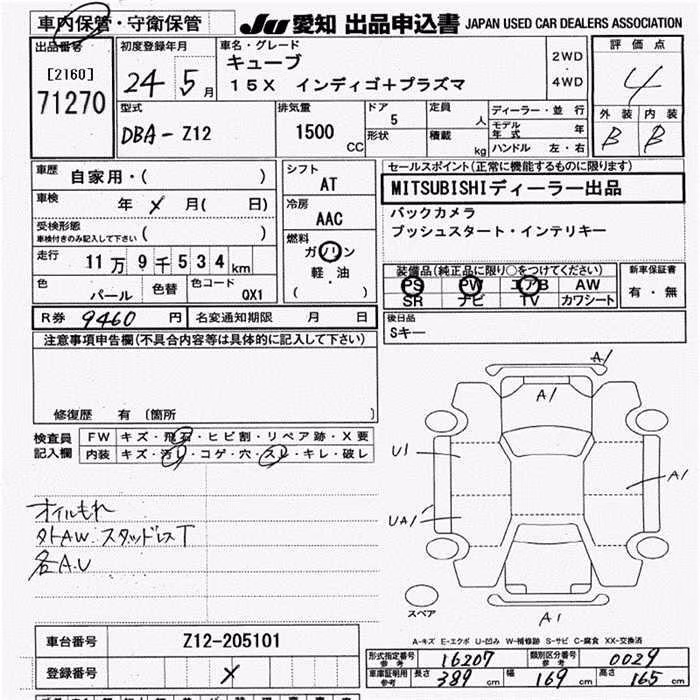 車内保管・守衛保管 JU 愛知 出品申込書 JAPAN USED CAR DEALERS ASSOCIATION
出品番号 初度登録年月 車名・グレード 評価点
[2160] 24年 5月 キューブ 2WD・4WD 4
71270 15X インディゴ+プラズマ
型式 排気量 ドア 定員 ディーラー・並行 外装 内装
DBA-Z12 1500CC 5 人 モデル年式 年 B B
形状 積載 kg ハンドル 左・右
車歴 自家用・( ) シフト セールスポイント(正常に機能するものに限ります)
車検 年 月( 日) AT MITSUBISHIディーラー出品
受検形態 ( ) 冷房 バックカメラ
車検付きのみ記入して下さい AAC プッシュスタート・インテリキー
走行 11万9千534km 燃料
ガソリン 装備品(純正品に限り○をつけてください) 新車保証書
色 色替 色コード 軽・油 PS PW エアB AW 有・無
パール QX1 ( ) SR ナビ TV カワシート
R券 9460円 名変通知期限 月 日 後日品
Sキー
注意事項申告欄(不具合内容等は具体的に記入して下さい)
修復歴 有 〔箇所 〕
検査員 FW キズ・飛石・ヒビ割・リペア跡・X要
記入欄 内装 キズ・汚レ・コゲ・穴・スレ・キレ・破レ
A1
A1
U1
A1
UA1
オイルもれ
外AW. スタッドレスT
各A.U
スペア
A1
A-キズ E-エクボ U-凹み W-補修跡 S-サビ C-腐食 XX-交換済
車台番号 Z12-205101
形式指定番号 参考 16207 類別区分番号 参考 0029
登録番号 X
車庫証明用 参考 長さ 389cm 幅 169cm 高さ 165cm